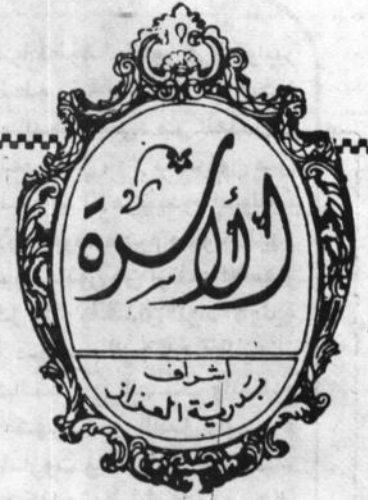 الأسرة
اشراف
بدرية العزاز